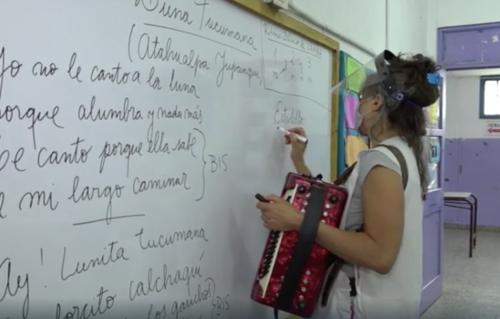 Luna Tucumana
(Atahualpa Yupanqui
Yo no le canto a la luna
porque alumbra y nada más
le canto porque ella sabe
mi largo caminar
BIS
Ay! Lunita tucumana
calchaquí
los gauchos
BIS
Estribillo